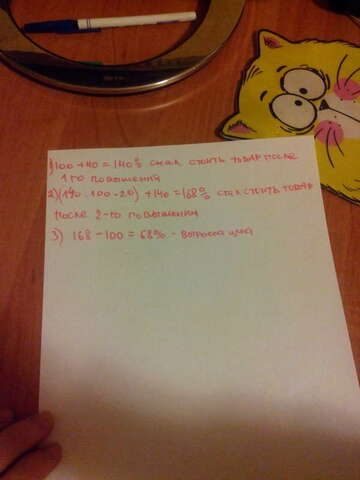 1) 100 + 40 = 140% стал стоить товар после
1 го повышения
2) (140 : 100 · 20) + 140 = 168% стал стоить товар
после 2-го повышения
3) 168 - 100 = 68% - выросла цена